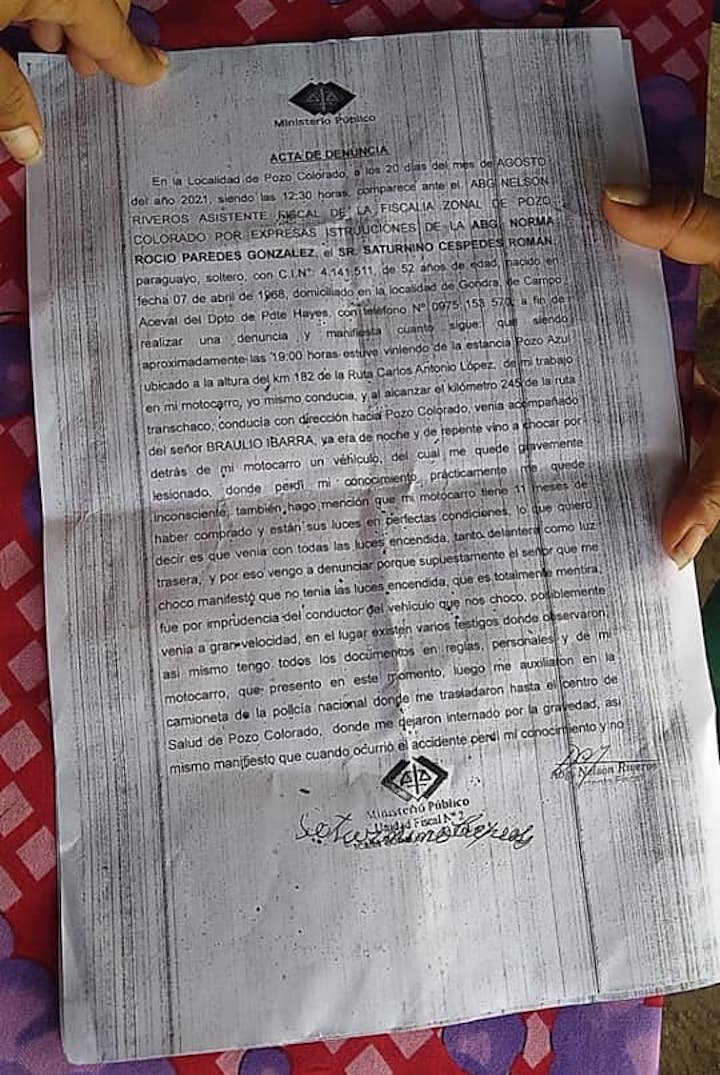 Ministerio Público
ACTA DE DENUNCIA
En la Localidad de Pozo Colorado, a los 20 días del mes de AGOSTO
del año 2021, siendo las 12:30 horas, comparece ante el ABG NELSON
RIVEROS ASISTENTE FISCAL DE LA FISCALIA ZONAL DE POZO
COLORADO POR EXPRESAS ISTRUCIONES DE LA ABG. NORMA
ROCIO PAREDES GONZALEZ, el SR. SATURNINO CESPEDES ROMAN,
paraguayo, soltero, con C.I.N°: 4.141.511, de 52 años de edad, nacido en
fecha 07 de abril de 1968, domiciliado en la localidad de Gondra, de Campo
Aceval del Dpto de Pdte Hayes, con teléfono N° 0975 153 570, a fin de
realizar una denuncia y manifiesta cuanto sigue: que siendo
aproximadamente las 19:00 horas estuve viniendo de la estancia Pozo Azul
ubicado a la altura del km 182 de la Ruta Carlos Antonio López, de mi trabajo
en mi motocarro, yo mismo conducia, y al alcanzar el kilómetro 245 de la ruta
transchaco, conducía con dirección hacia Pozo Colorado, venía acompañado
del señor BRAULIO IBARRA, ya era de noche y de repente vino a chocar por
detrás de mi motocarro un vehículo, del cual me quede gravemente
lesionado, donde perdí mi conocimiento, prácticamente me quede
inconsciente, también hago mención que mi motocarro tiene 11 meses de
haber comprado y están sus luces en perfectas condiciones, lo que quiero
decir es que venía con todas las luces encendida, tanto delantera como luz
trasera, y por eso vengo a denunciar porque supuestamente el señor que me
choco manifestó que no tenia las luces encendida, que es totalmente mentira,
fue por imprudencia del conductor del vehículo que nos choco, posiblemente
venía a gran velocidad, en el lugar existen varios testigos donde observaron,
así mismo tengo todos los documentos en reglas, personales y de mi
motocarro, que presento en este momento, luego me auxiliaron en la
camioneta de la policía nacional donde me trasladaron hasta el centro de
Salud de Pozo Colorado, donde me dejaron internado por la gravedad, así
mismo manifiesto que cuando ocurrió el accidente perdí mi conocimiento y no
Abg. Nelson Riveros
Ministerio Público
Unidad Fiscal N° 2